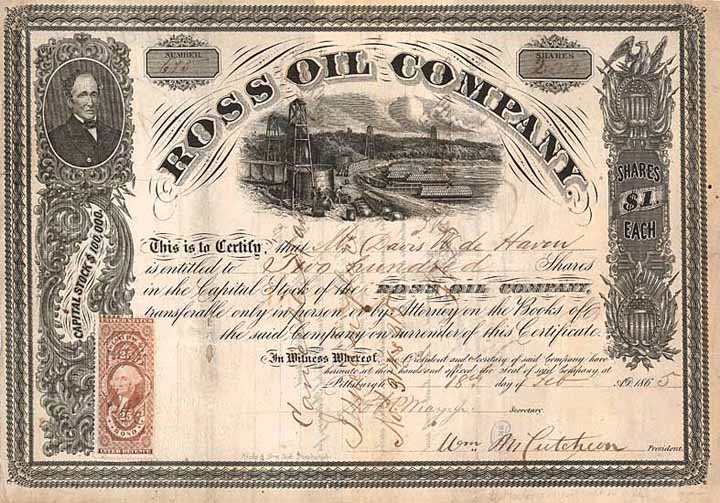 NUMBER
SHARES
ROSS OIL COMPANY
CAPITAL STOCK $100,000.
SHARES
$1.
EACH
This is to Certify, that Mr. Davis de Haven
is entitled to Two hundred Shares
in the Capital Stock of the ROSS OIL COMPANY
transferable only in person or by Attorney on the Books of
the said Company on surrender of this Certificate.
In Witness Whereof, the President and Secretary of said Company have
hereunto set their hands and affixed the Seal of said Company at
Pittsburgh 18th day of Feb AD 1865
Secretary
Wm McCutcheon President.
UNITED STATES
25 25
INTER. REVENUE